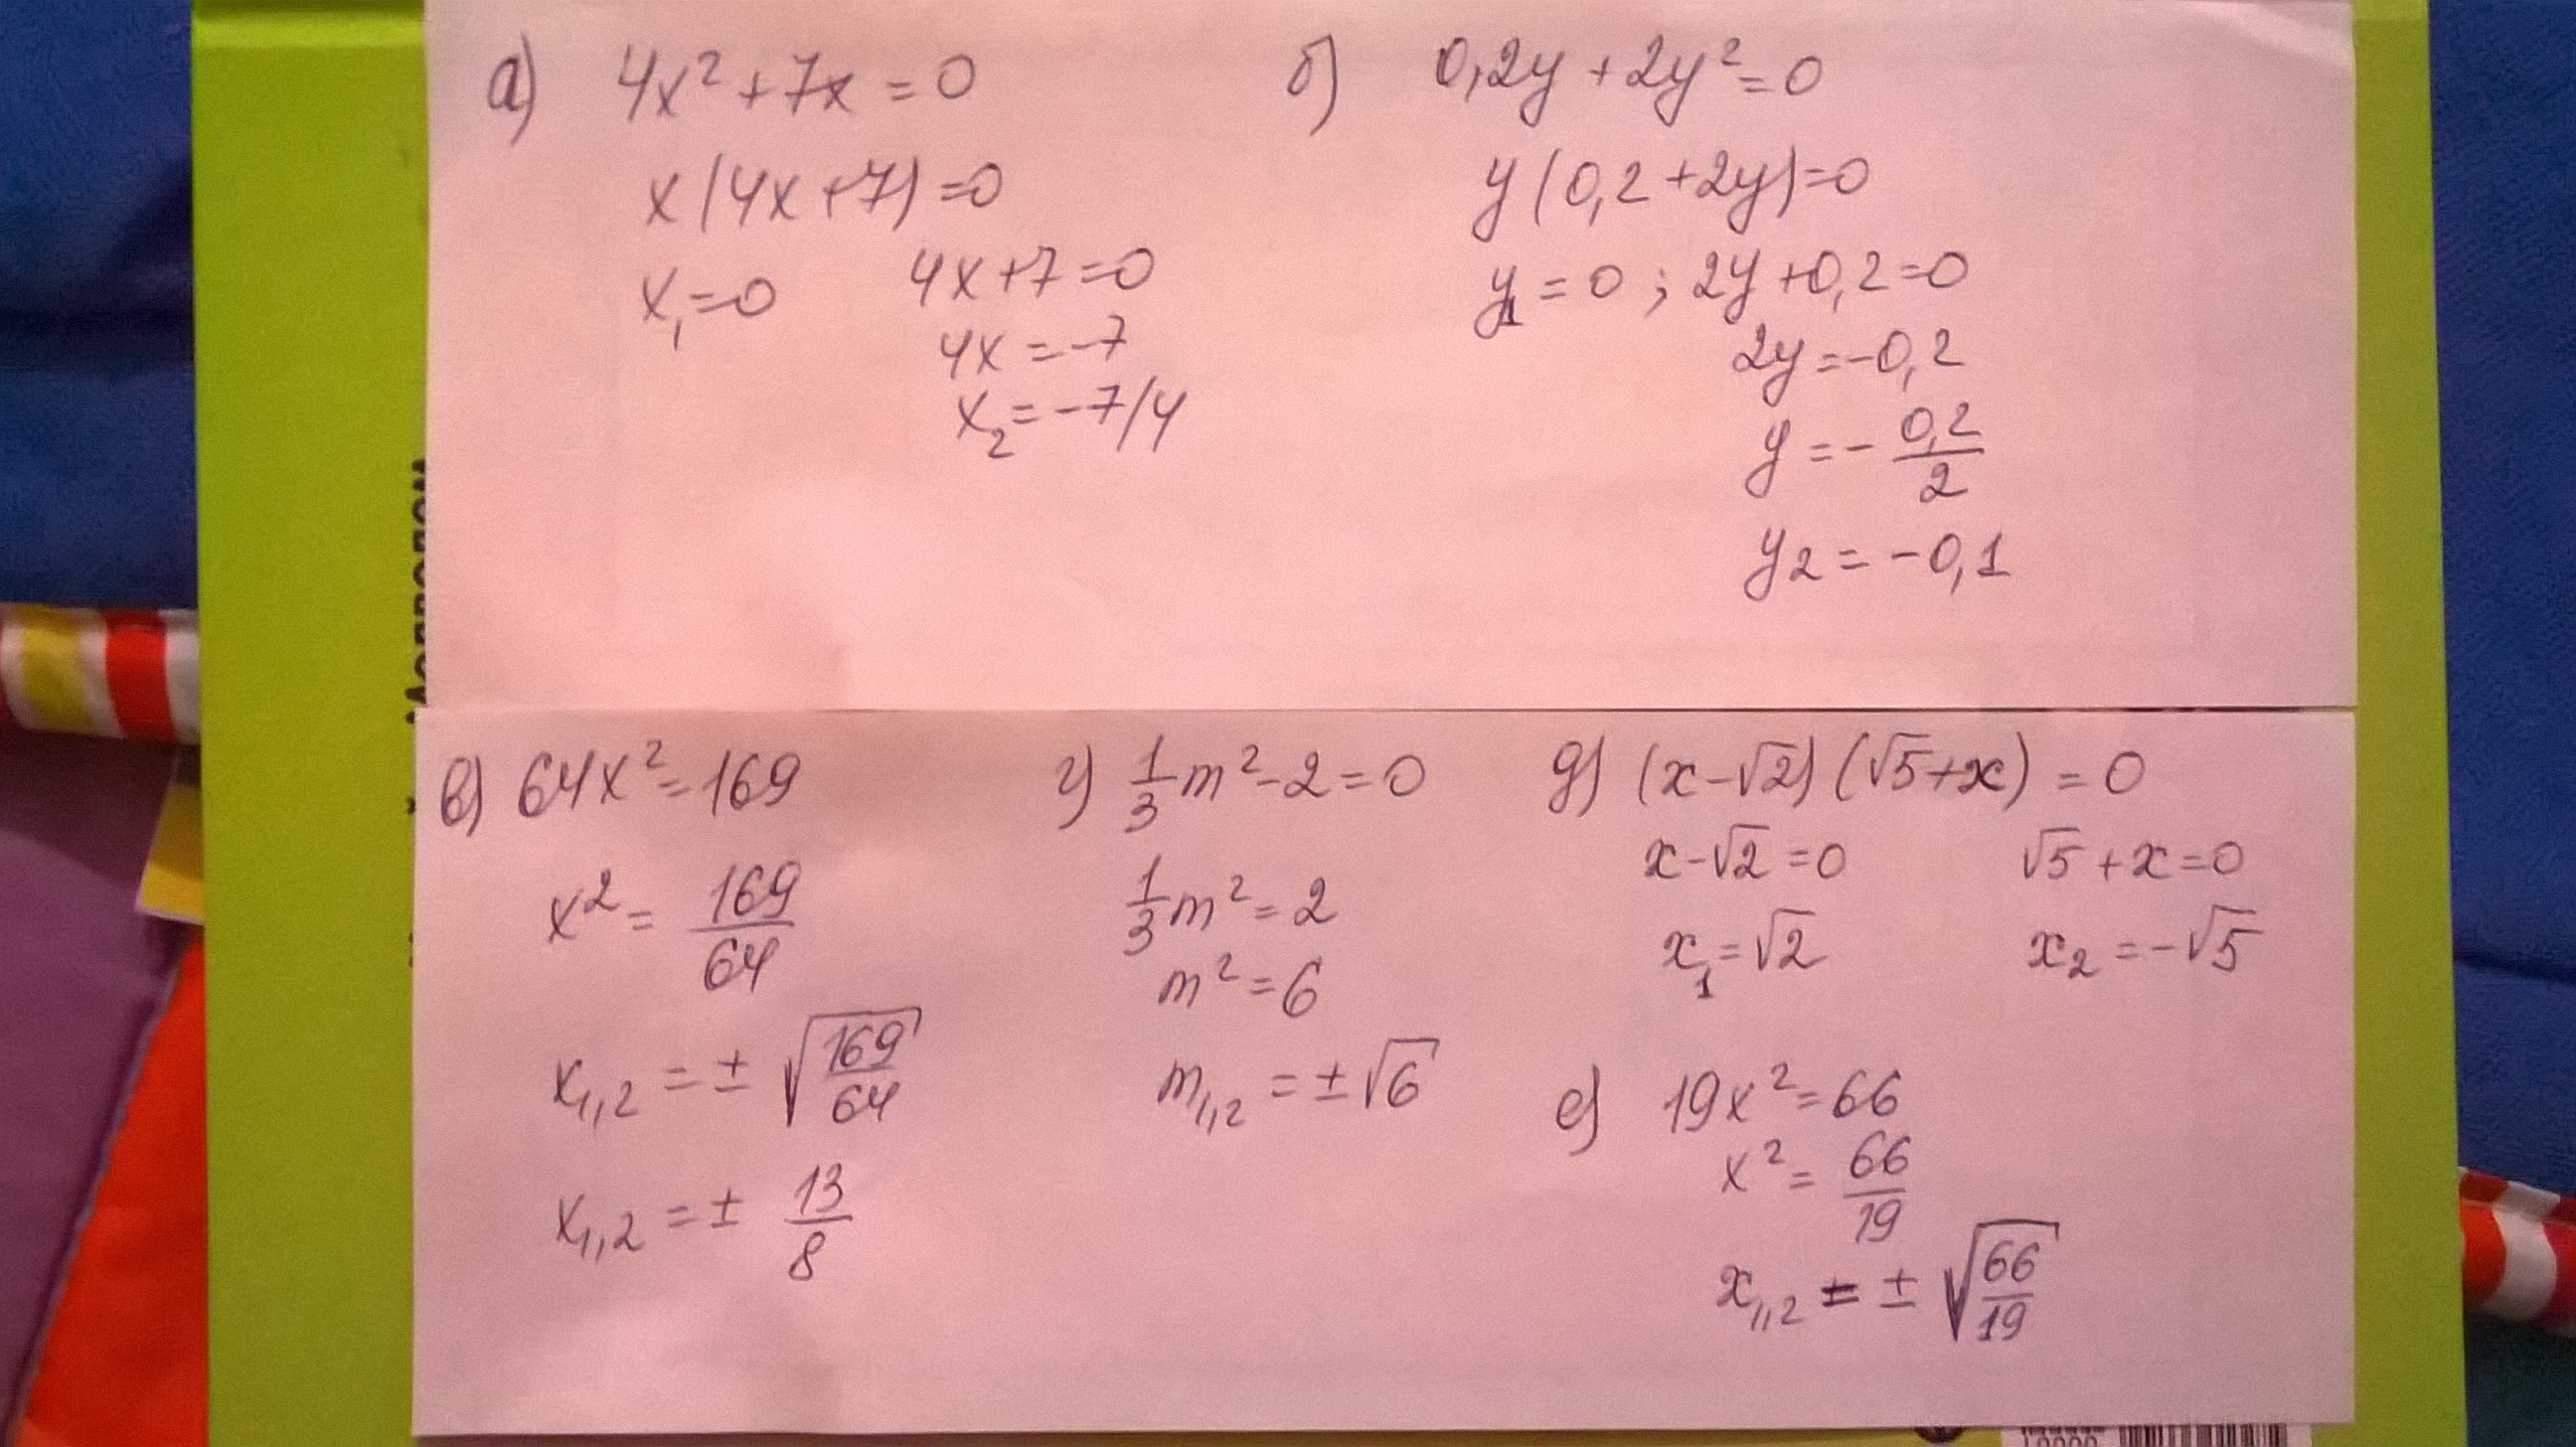 а) 4x² + 7x = 0
x(4x+7)=0
x₁=0 4x+7=0
4x=-7
x₂=-7/4
б) 0,2y + 2y² = 0
y(0,2+2y)=0
y₁=0; 2y+0,2=0
2y=-0,2
y=-0,2/2
y₂=-0,1
в) 64x²=169
x²=169/64
x₁,₂=±√(169/64)
x₁,₂=±13/8
г) 1/3m²-2=0
1/3m²=2
m²=6
m₁,₂=±√6
д) (x-√2)(√5+x)=0
x-√2=0 √5+x=0
x₁=√2 x₂=-√5
е) 19x²=66
x²=66/19
x₁,₂=±√(66/19)